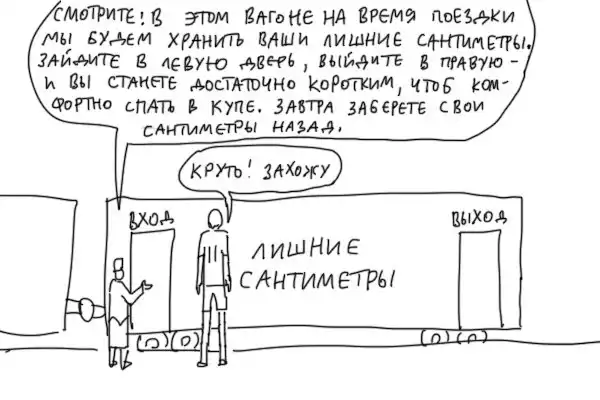 СМОТРИТЕ! В ЭТОМ ВАГОНЕ НА ВРЕМЯ ПОЕЗДКИ
МЫ БУДЕМ ХРАНИТЬ ВАШИ ЛИШНИЕ САНТИМЕТРЫ.
ЗАЙДИТЕ В ЛЕВУЮ ДВЕРЬ, ВЫЙДИТЕ В ПРАВУЮ -
И ВЫ СТАНЕТЕ ДОСТАТОЧНО КОРОТКИМ, ЧТОБ КОМ-
ФОРТНО СПАТЬ В КУПЕ. ЗАВТРА ЗАБЕРЕТЕ СВОИ
САНТИМЕТРЫ НАЗАД.
КРУТЬ! ЗАХОЖУ
ВХОД
ВЫХОД
ЛИШНИЕ
САНТИМЕТРЫ